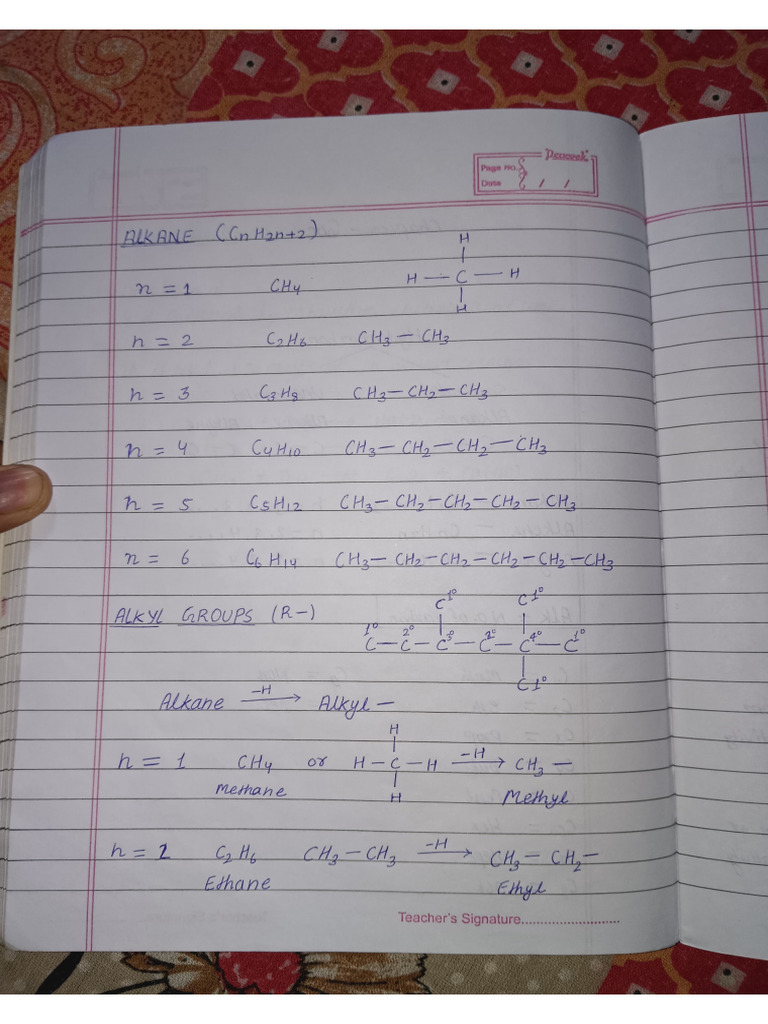 Peacock
Page No.
Date / /
ALKANE (CnH2n+2)
H
n = 1 CH4 H — C — H
H
n = 2 C2H6 CH3 — CH3
n = 3 C3H8 CH3 — CH2 — CH3
n = 4 C4H10 CH3 — CH2 — CH2 — CH3
n = 5 C5H12 CH3 — CH2 — CH2 — CH2 — CH3
n = 6 C6H14 CH3 — CH2 — CH2 — CH2 — CH2 — CH3
C1° C1°
ALKYL GROUPS (R-)
1° 2° 3° 2° 4° 1°
C — C — C — C — C — C
C1°
Alkane -H → Alkyl —
H
n = 1 CH4 or H — C — H -H → CH3 —
H
Methane Methyl
n = 2 C2H6 CH3 — CH3 -H → CH3 — CH2 —
Ethane Ethyl
Teacher's Signature..........................